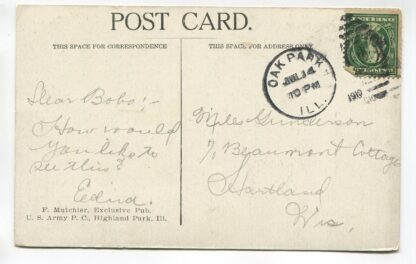 POST CARD.
THIS SPACE FOR CORRESPONDENCE
THIS SPACE FOR ADDRESS ONLY
OAK PARK
JUL 14
PM
1910
ILL.
Dear Bobo:-
How would
you like to
see this?
Edna.
Gunderson
Beaumont Cottage
Hartland
Wis,
F. Mutchler, Exclusive Pub.
U. S. Army P. C., Highland Park, Ill.